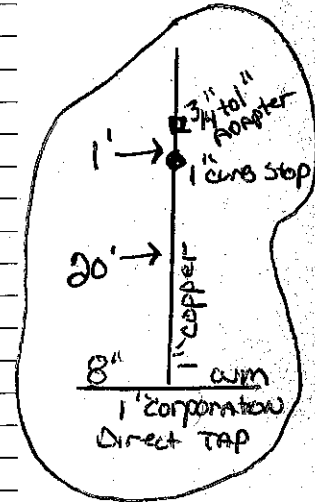 3/4" to 1"
ADAPTER
1'
1" curb stop
20'
1" copper
8" WM
1" corporation
Direct TAP